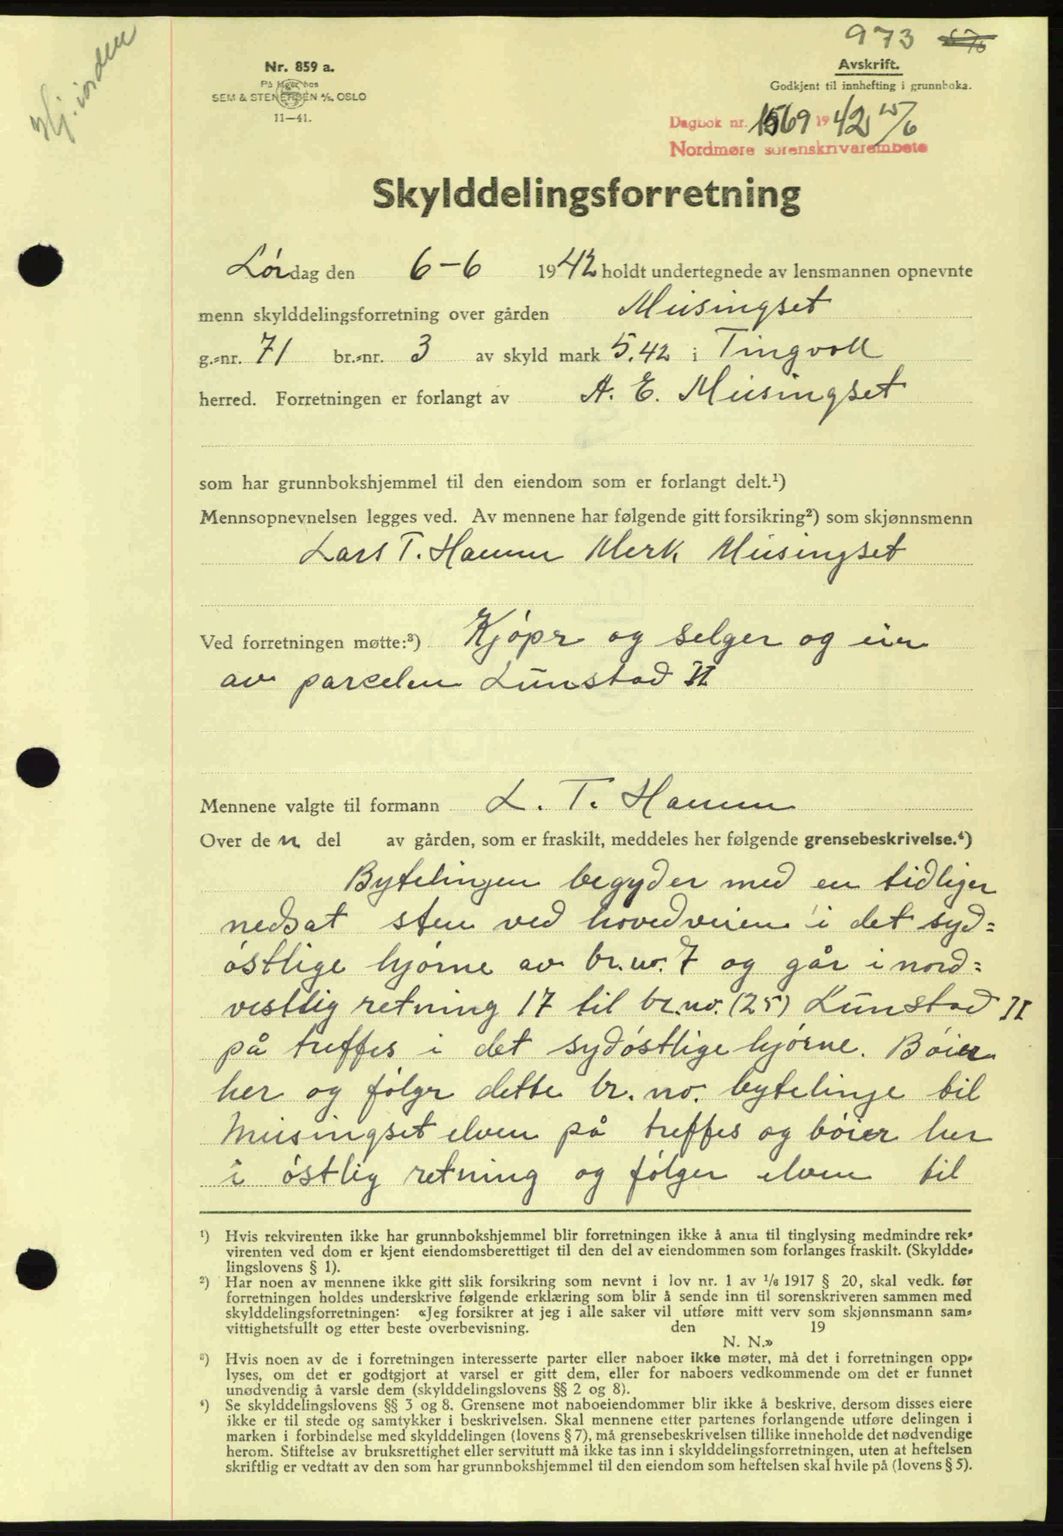 973
Nr. 859 a.
På lager hos
SEM & STENERSEN A/S, OSLO
11—41.
Avskrift.
Godkjent til innhefting i grunnboka.
Dagbok nr. 1569 1942 15/6
Nordmøre sorenskrivarembete
Skylddelingsforretning
Lørdag den 6-6 1942 holdt undertegnede av lensmannen opnevnte
menn skylddelingsforretning over gården Meisingset
g.-nr. 71 br.-nr. 3 av skyld mark 5.42 i Tingvoll
herred. Forretningen er forlangt av A. E. Meisingset
som har grunnbokshjemmel til den eiendom som er forlangt delt.¹)
Mennsopnevnelsen legges ved. Av mennene har følgende gitt forsikring²) som skjønnsmenn
Lars T. Hamn Merk Meisingset
Ved forretningen møtte:³) Kjøpr og selger og eier
av parcelen Lunstad II
Mennene valgte til formann L. T. Hamn
Over de n del av gården, som er fraskilt, meddeles her følgende grensebeskrivelse.⁴)
Bytelinjen begynder med en tidliger
nedsat sten ved hovedveien i det syd=
østlige hjørne av br.no. 7 og går i nord=
vestlig retning 17 til br.no. (25) Lunstad II
på treffes i det sydøstlige hjørne. Bøier
her og følgr dette br. no. bytelinje til
Meisingset elven på treffes og bøier her
i østlig retning og følger elven til
¹) Hvis rekvirenten ikke har grunnbokshjemmel blir forretningen ikke å anta til tinglysing medmindre rek-
virenten ved dom er kjent eiendomsberettiget til den del av eiendommen som forlanges fraskilt. (Skyldde-
lingslovens § 1).
²) Har noen av mennene ikke gitt slik forsikring som nevnt i lov nr. 1 av 1/6 1917 § 20, skal vedk. før
forretningen holdes underskrive følgende erklæring som blir å sende inn til sorenskriveren sammen med
skylddelingsforretningen: «Jeg forsikrer at jeg i alle saker vil utføre mitt verv som skjønnsmann sam-
vittighetsfullt og etter beste overbevisning. den 19
N. N.»
³) Hvis noen av de i forretningen interesserte parter eller naboer ikke møter, må det i forretningen opp-
lyses, om det er godtgjort at varsel er gitt dem, eller for naboers vedkommende om det er funnet
unødvendig å varsle dem (skylddelingslovens §§ 2 og 8).
⁴) Se skylddelingslovens §§ 3 og 8. Grensene mot naboeiendommer blir ikke å beskrive, dersom disses eiere
ikke er til stede og samtykker i beskrivelsen. Skal mennene etter partenes forlangende utføre delingen i
marken i forbindelse med skylddelingen (lovens § 7), må grensebeskrivelsen tillike inneholde det nødvendige
herom. Stiftelse av bruksrettighet eller servitutt må ikke tas inn i skylddelingsforretningen, uten at heftelsen
skriftlig er vedtatt av den som har grunnbokshjemmel til den eiendom som heftelsen skal hvile på (lovens § 5).